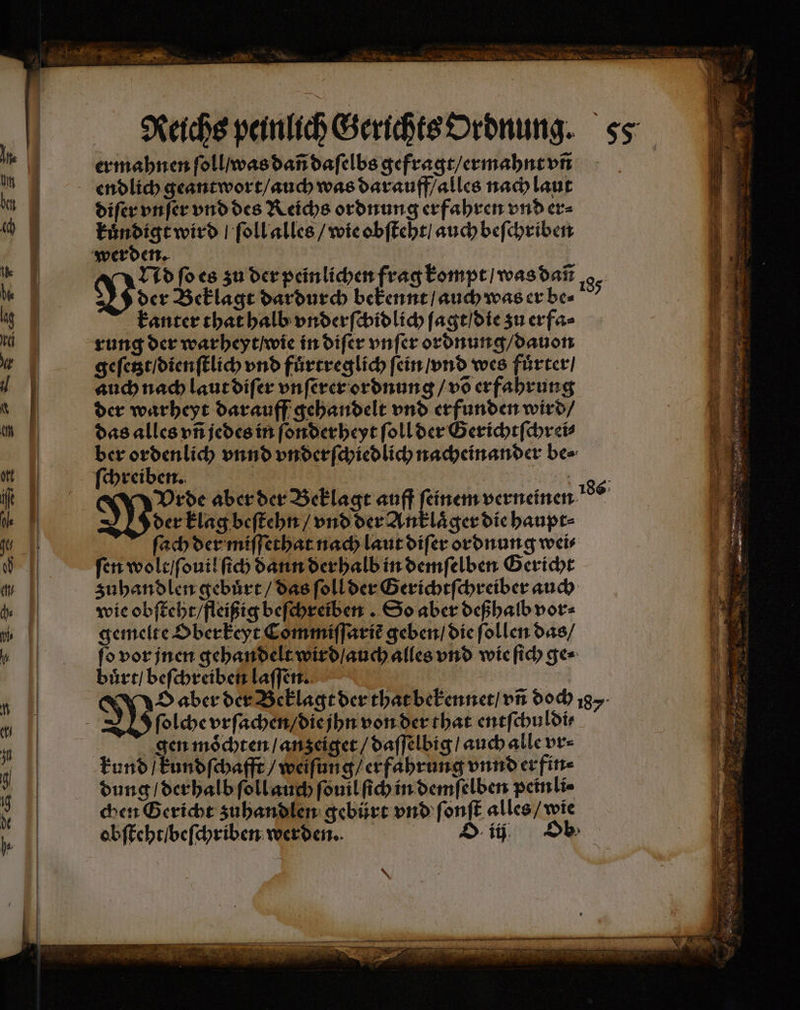 Reichs peinlich Gerichts Ordnung. 55
ermahnen ſoll/was dañ daſelbs gefragt/ermahnt vñ
endlich geantwort/auch was darauff/alles nach laut
diſer vnſer vnd des Reichs ordnung erfahren vnd er⸗
kuͤndigt wird / ſoll alles / wie obſteht/ auch beſchriben
werden.
VNd ſo es zu der peinlichen frag kompt / was dañ 185
der Beklagt dardurch bekennt / auch was er be⸗
kanter that halb vnderſchidlich ſagt/die zu erfa⸗
rung der warheyt/wie in diſer vnſer ordnung/dauon
geſetzt/dienſtlich vnd fuͤrtreglich ſein /vnd wes fuͤrter/
auch nach laut diſer vnſerer ordnung / võ erfahrung
der warheyt darauff gehandelt vnd erfunden wird/
das alles vñ jedes in ſonderheyt ſoll der Gerichtſchrei⸗
ber ordenlich vnnd vnderſchiedlich nacheinander be⸗
ſchreiben.
WVrde aber der Beklagt auff ſeinem verneinen 186
der klag beſtehn / vnd der Anklaͤger die haupt⸗
ſach der miſſethat nach laut diſer ordnung wei⸗
ſen wolt/ſouil ſich dann derhalb in demſelben Gericht
zuhandlen gebuͤrt / das ſoll der Gerichtſchreiber auch
wie obſteht/fleißig beſchreiben . So aber deßhalb vor⸗
gemelte Oberkeyt Commiſſariẽ geben/ die ſollen das/
ſo vor jnen gehandelt wird/auch alles vnd wie ſich ge⸗
buͤrt/ beſchreiben laſſen.
WO aber der Beklagt der that bekennet/ vñ doch 187
ſolche vrſachen/die jhn von der that entſchuldi⸗
gen moͤchten / anzeiget / daſſelbig / auch alle vr⸗
kund / kundſchafft / weiſung/ erfahrung vnnd erfin⸗
dung / derhalb ſoll auch ſouil ſich in demſelben peinli⸗
chen Gericht zuhandlen gebuͤrt vnd ſonſt alles / wie
obſteht/beſchriben werden.
O iij Ob